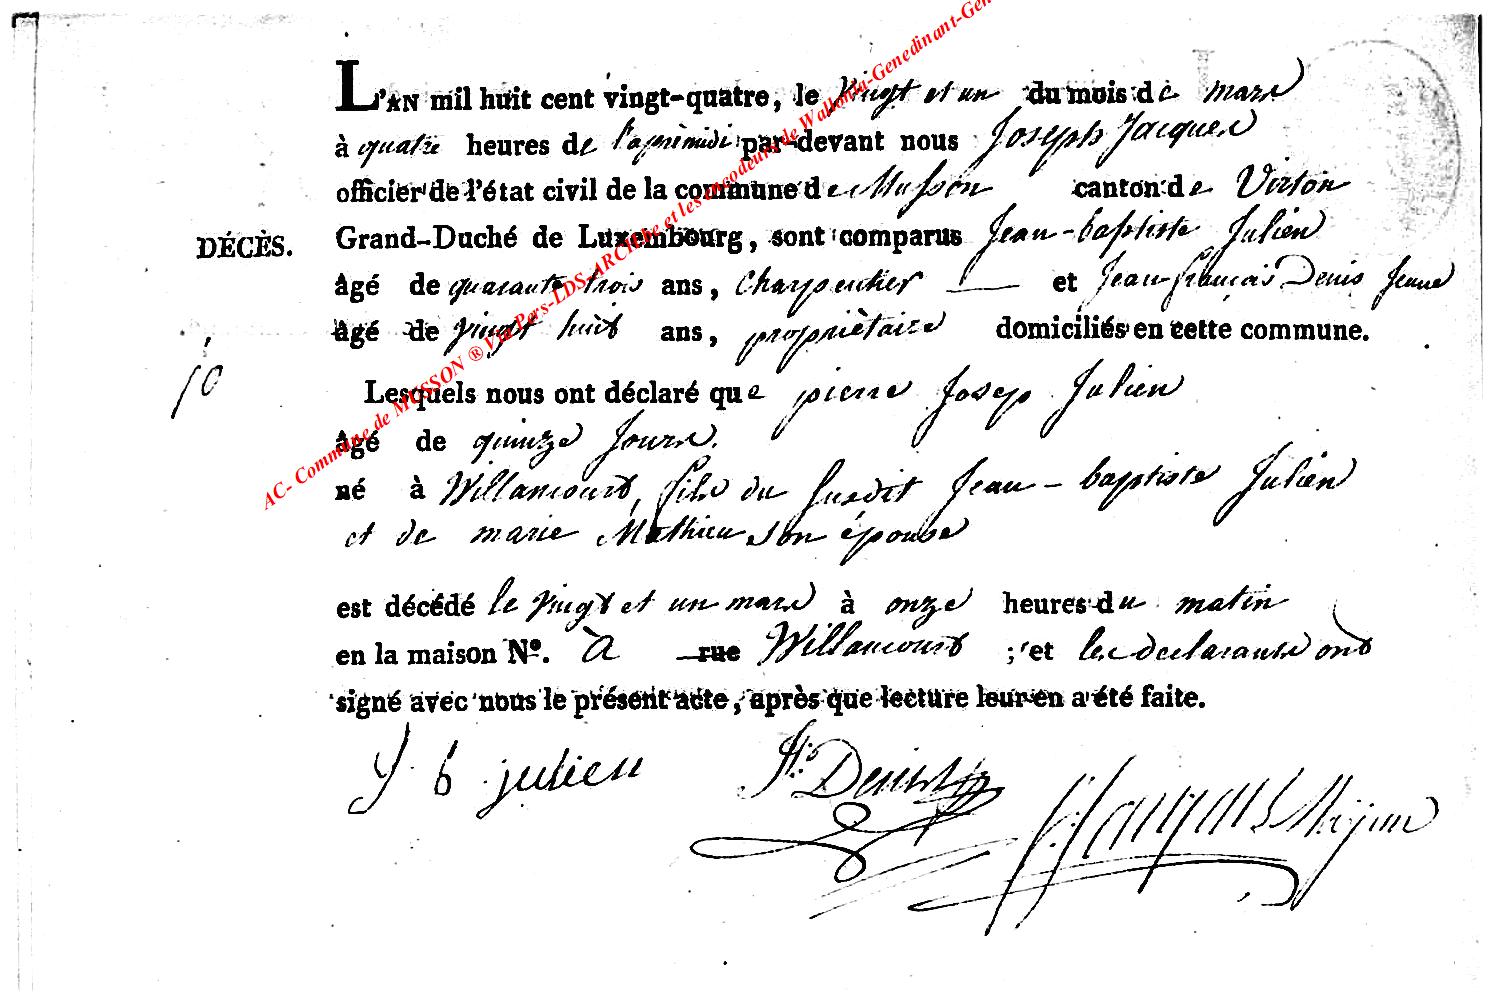 L'AN mil huit cent vingt-quatre, le vingt et un du mois de mars
à quatre heures de l'aprèmidi par-devant nous Joseph Jacques
officier de l'état civil de la commune de Musson canton de Virton
DÉCÈS. Grand-Duché de Luxembourg, sont comparus Jean-baptiste Julien
âgé de quarante trois ans, Charpentier — et Jean françois Denis Jeune
âgé de vingt huit ans, propriètaire domiciliés en cette commune.
10
Lesquels nous ont déclaré que pierre Josep Julien
âgé de quinze Jours.
né à Willancourt, fils du susdit Jean-baptiste Julien
et de marie Mathieu son épouse
est décédé le vingt et un mars à onze heures du matin
en la maison N°. à rue Willancourt ; et les declarants ont
signé avec nous le présent acte, après que lecture leur en a été faite.
J b julien
AC- Commune de MUSSON ® Via Pers-LDS-ARCHive et les encodeurs de Wallonia-Genedinant-Gen